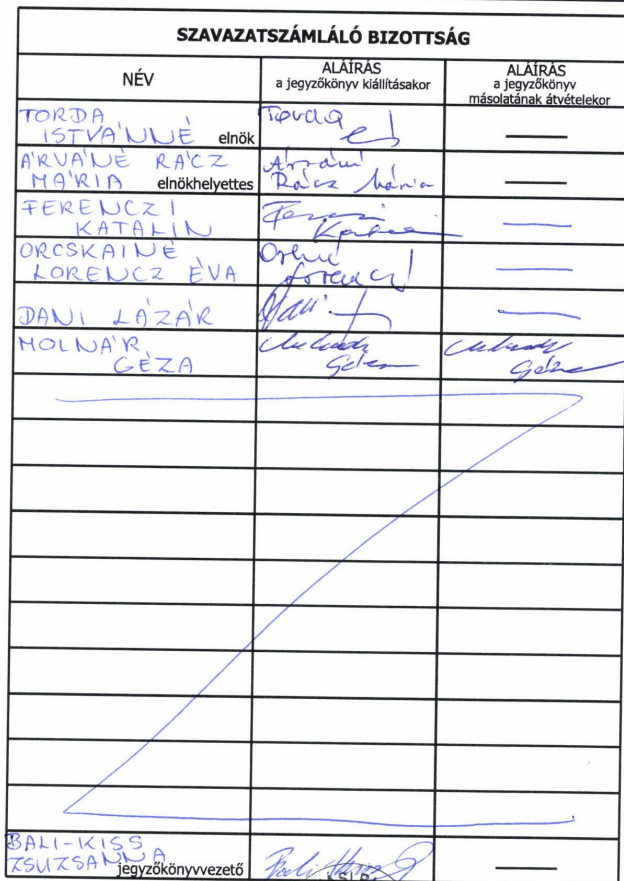 SZAVAZATSZÁMLÁLÓ BIZOTTSÁG
NÉV
ALÁÍRÁS
a jegyzőkönyv kiállításakor
ALÁÍRÁS
a jegyzőkönyv
másolatának átvételekor
TORDA
ISTVÁNNÉ elnök
Torda
ÁRVÁNÉ RÁCZ
MÁRIA elnökhelyettes
Árváné
Rácz Mária
FERENCZI
KATALIN
ORCSKAINÉ
LORENCZ ÉVA
Lorencz
DANI LÁZÁR
Dani
MOLNÁR
GÉZA
Molnár
Géza
Molnár
Géza
BALI-KISS
ZSUZSANNA
jegyzőkönyvvezető
Bali